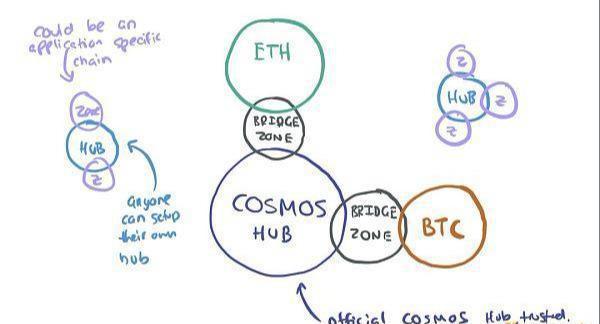 could be an
application specific
chain
ETH
Zone
HUB
Z
BRIDGE
ZONE
Z
HUB
Z
Z
anyone
can setup
their own
hub
COSMOS
HUB
BRIDGE
ZONE
BTC
official COSMOS Hub, trusted.